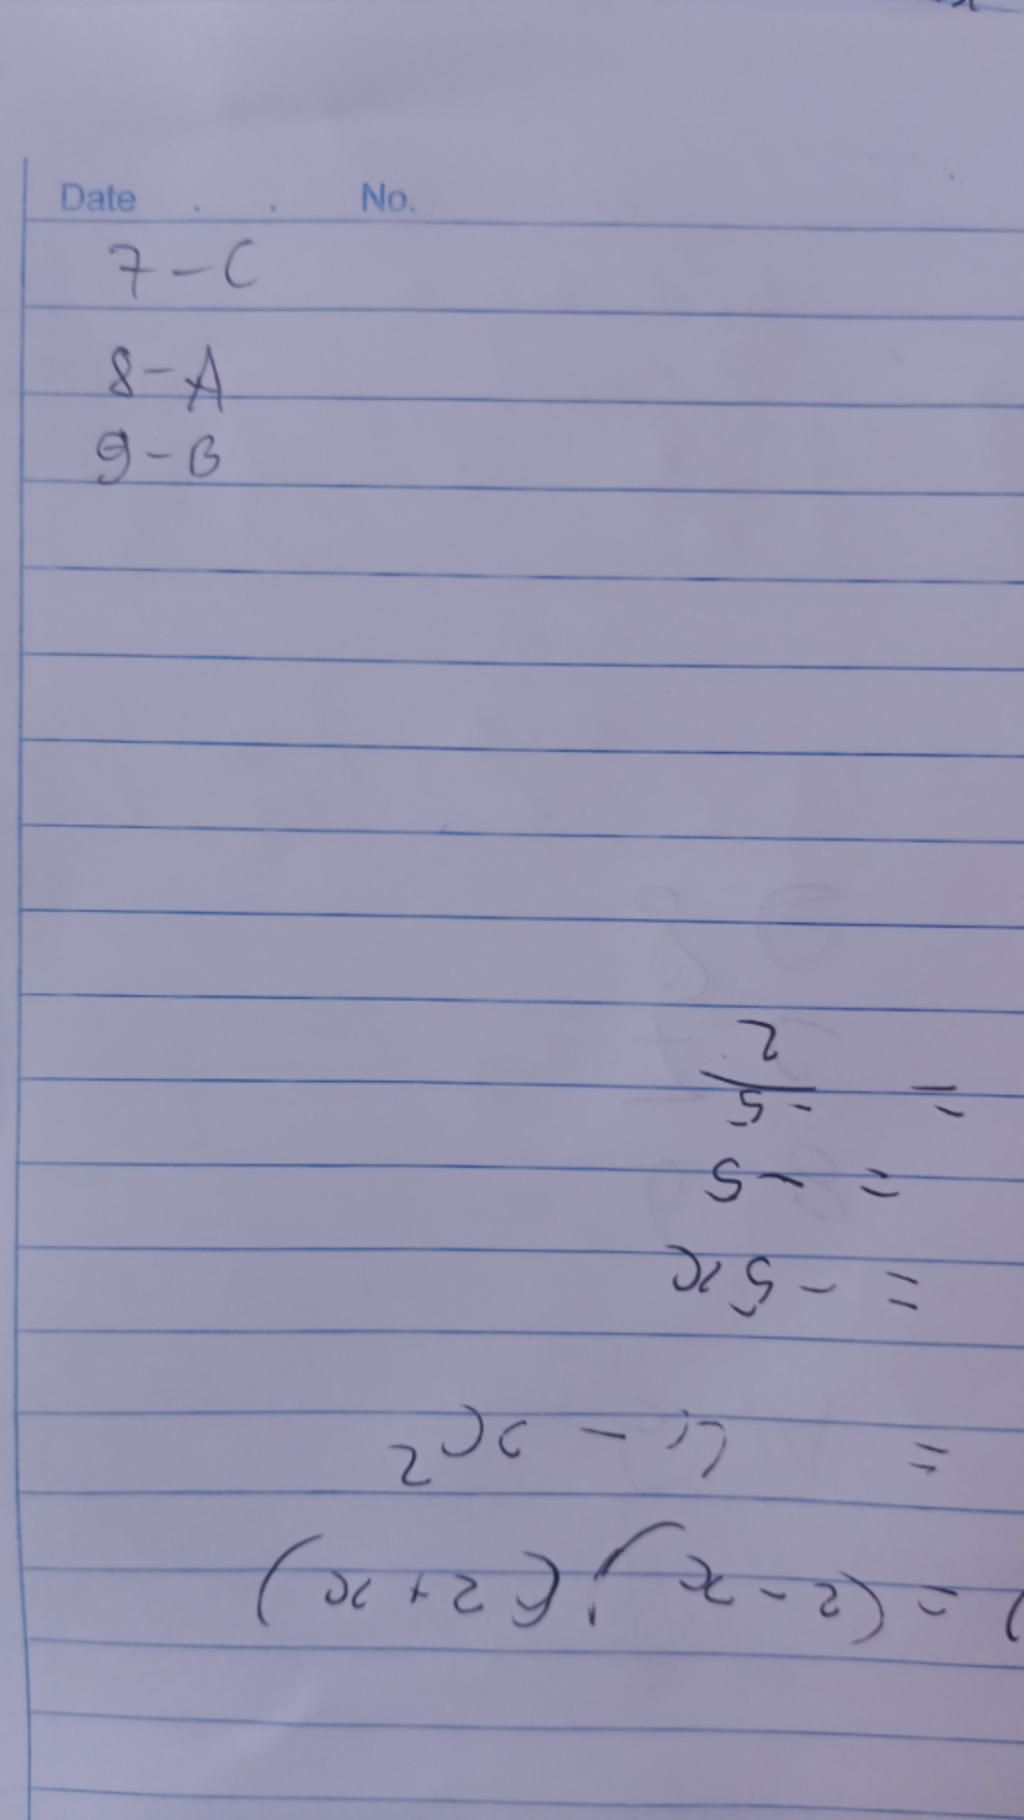 Date . . No.
7 - C
8 - A
9 - B
= (2 - x) (2 + x)
= 4 - x²
= - 5x
= - 5
= -5/2